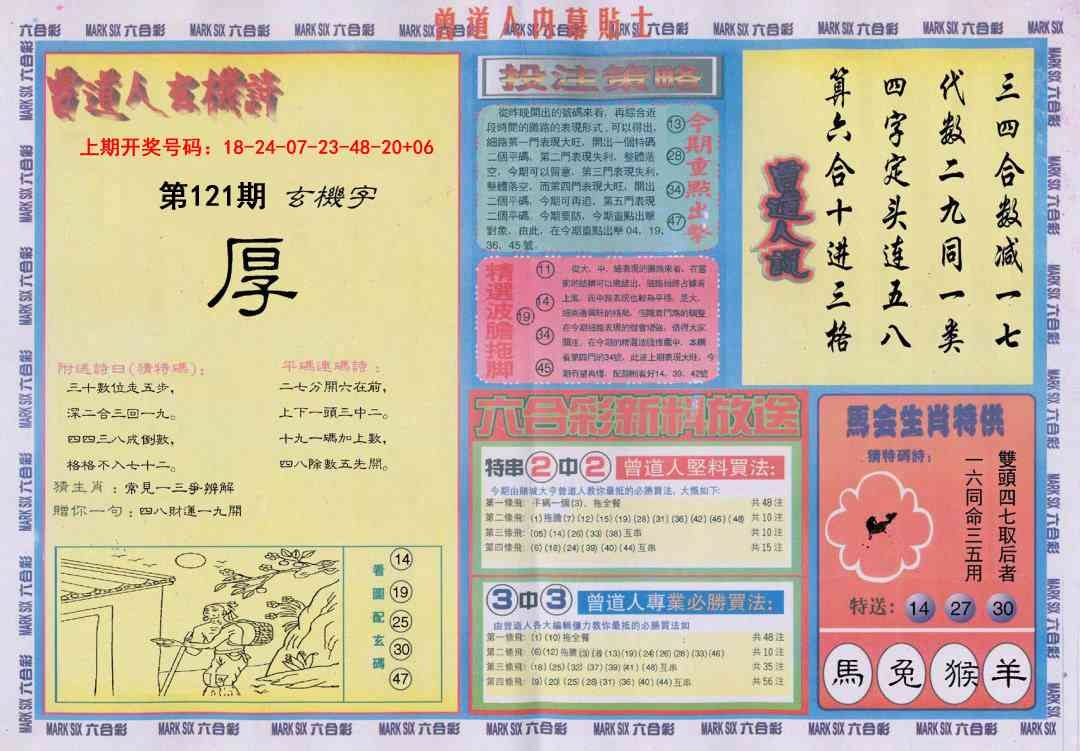 曾道人内幕貼士
MARK SIX 六合彩
曾道人玄機詩
上期开奖号码：18-24-07-23-48-20+06
第121期 玄機字
厚
附送詩曰(猜特碼)：
三十數位走五步，
深二合三回一九。
四四三八成倒數，
格格不入七十二。
平碼連碼詩：
二七分開六在前，
上下一頭三中二。
十九一碼加上數，
四八除數五先開。
猜生肖：常見一三爭辨解
贈你一句：四八財運一九開
看圖配玄碼
14
19
25
30
47
投注策略
從昨晚開出的號碼來看，再綜合近
段時間的攤路的表現形式，可以得出，
細路第一門表現大旺，開出一個特碼
二個平碼，第二門表現失利，整體落
空，今期可以留意，第三門表現失利，
整體落空，而第四門表現大旺，開出
二個平碼，今期可再追，第五門表現
二個平碼，今期要防，今期重點出擊
對象，由此，在今期重點出擊04，19，
36，45號。
13
28
34
47
今期重點出擊
精選波膽拖脚
11
14
19
34
45
看第四門的34號，此波上期表現大旺，今
期有望再爆，配腳則看好14、39、42號
六合彩新料放送
特串2中2 曾道人堅料買法：
今期由賭城大亨曾道人教你最抵的必勝買法，大概如下：
第一條飛：平碼一個(3)，拖全餐 共48注
第二條飛：(1)拖膽(7)(12)(15)(19)(28)(31)(36)(42)(45)(48) 共10注
第三條飛：(05)(14)(26)(33)(38)互串 共10注
第四條飛：(6)(18)(24)(39)(40)(44)互串 共15注
3中3 曾道人專業必勝買法：
由曾道人各大編輯傾力教你最抵的必勝買法如
第一條飛：(1)(10)拖全餐 共48注
第二條飛：(6)(12)拖膽(3)(9)(13)(19)(24)(26)(28)(33)(46) 共10注
第三條飛：(18)(25)(32)(37)(39)(41)(48)互串 共35注
第四條飛：(9)(20)(25)(28)(31)(36)(40)(44)互串 共56注
曾道人說
三四合数减一七
代数二九同一类
四字定头连五八
算六合十进三格
馬会生肖特供
猜特碼詩：
雙頭四七取后者
一六同命三五用
特送：14 27 30
馬 兔 猴 羊
MARK SIX 六合彩